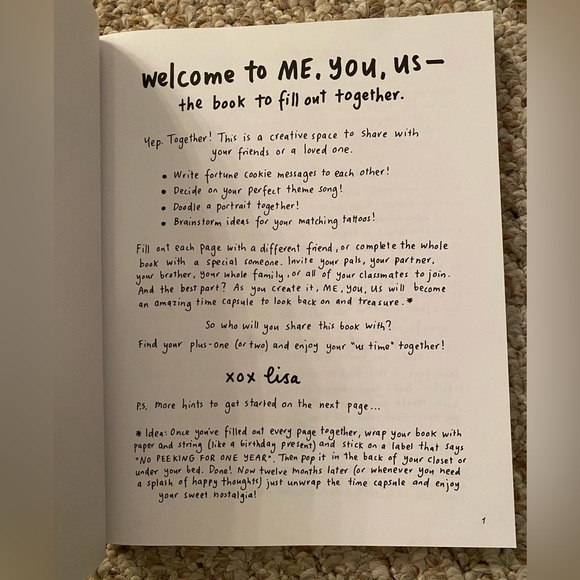 welcome to ME, YOU, US—
the book to fill out together.
Yep. Together! This is a creative space to share with
your friends or a loved one.
• Write fortune cookie messages to each other!
• Decide on your perfect theme song!
• Doodle a portrait together!
• Brainstorm ideas for your matching tattoos!
Fill out each page with a different friend, or complete the whole
book with a special someone. Invite your pals, your partner,
your brother, your whole family, or all of your classmates to join.
And the best part? As you create it, ME, YOU, US will become
an amazing time capsule to look back on and treasure.*
So who will you share this book with?
Find your plus-one (or two) and enjoy your "us time" together!
xox lisa
P.S. More hints to get started on the next page...
* Idea: Once you've filled out every page together, wrap your book with
paper and string (like a birthday present) and stick on a label that says
"NO PEEKING FOR ONE YEAR". Then pop it in the back of your closet or
under your bed. Done! Now twelve months later (or whenever you need
a splash of happy thoughts) just unwrap the time capsule and enjoy
your sweet nostalgia!
1